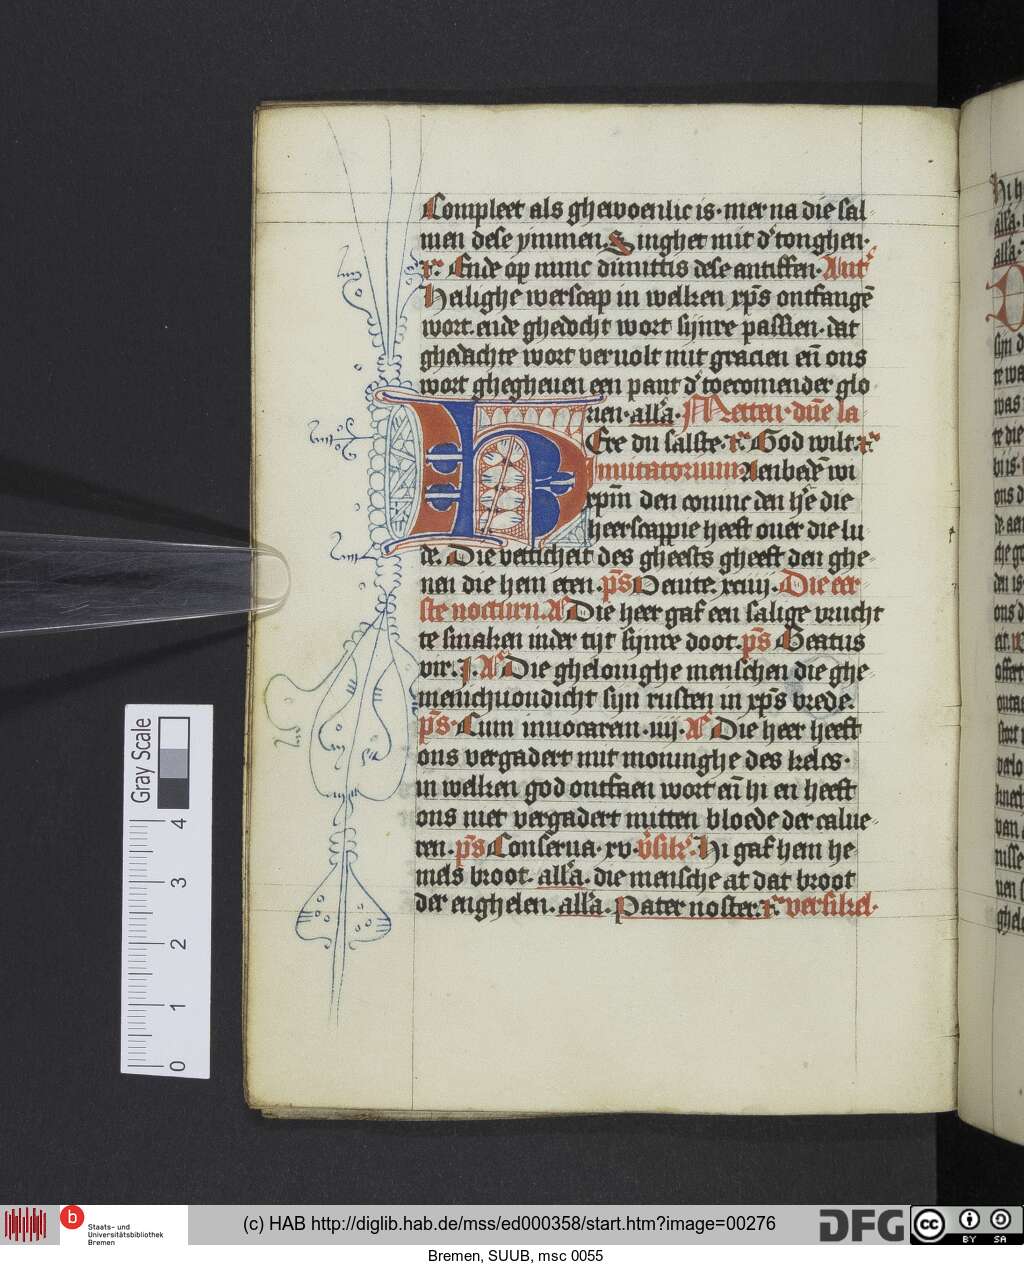 Compleet als ghewoenlic is· mer na die sal
men dese ymmen Singhet mit d' tonghen·
r̄ Ende op nunc dimittis dese antiffen· Ant'
Heilighe werscap in welken xp̄s ontfangē
wort· ende ghedocht wort sijnre passien· dat
ghedachte wort vervolt mit gracien eñ ons
wort ghegheuen een pant d' toecomender glo
rien· all'a· Metten· dn̄e la
HEre du salste· r̄ God wilt· r̄
Inuitatorium Aenbedē wi
xpm̄ den coninc den h'e die
heerscappie heeft ouer die lu
de· Die vetticheit des gheests gheeft den ghe
nen die hem eten· p̄s Venite· xciiij· Die eer
ste nocturn· A' Die heer gaf een salige vrucht
te smaken inder tijt sijnre doot· p̄s Beatus
vir· J· A' Die ghelouighe menschen die ghe
menichuoudicht sijn rusten in xp̄s vrede·
p̄s· Cum inuocarem· iiij· A' Die heer heeft
ons vergadert mit moninghe des kelcs·
in welken god ontfaen wort eñ hi en heeft
ons niet vergadert mitten bloede der calue
ren· p̄s Conserua· xv· v'sik'· Hi gaf hem he
mels broot· all'a· die mensche at dat broot
der enghelen· all'a· Pater noster· r̄ versikel·
Gray Scale
4
3
2
1
0
b
Staats- und
Universitätsbibliothek
Bremen
(c) HAB http://diglib.hab.de/mss/ed000358/start.htm?image=00276
DFG
cc
BY SA
Bremen, SUUB, msc 0055